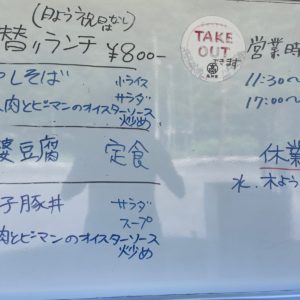 (日よう祝日なし)
替りランチ ¥800-
TAKE
OUT
できます
営業時
11:30〜
17:00〜
しそば 小ライス
サラダ
肉とピーマンのオイスターソース
炒め
婆豆腐 定食
休業
水.木よう
子豚丼 サラダ
スープ
肉とピーマンのオイスターソース
炒め